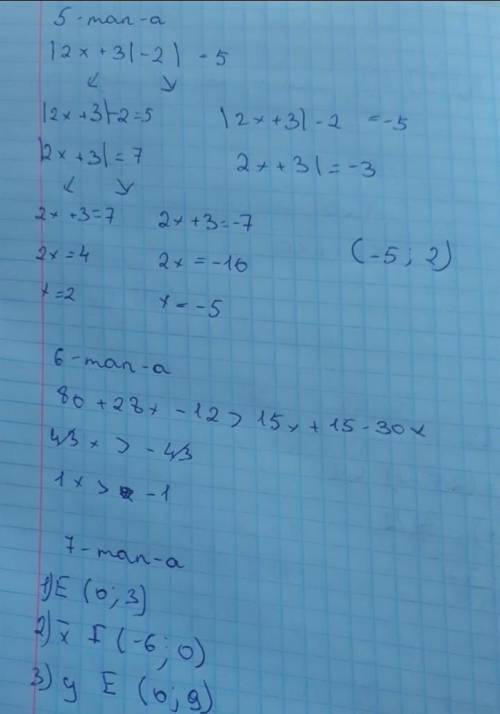 5-тап-а
|2x+3|-2| -5
|2x+3|-2=5 |2x+3|-2 =-5
|2x+3|=7 2x+3|=-3
2x+3=7 2x+3=-7
2x=4 2x=-10
x=2 x=-5 (-5; 2)
6-тап-а
80+28x-12>15x+15-30x
43x>-43
1x>-1
7-тап-а
1) E (0;3)
2) x E (-6;0)
3) y E (0;9)